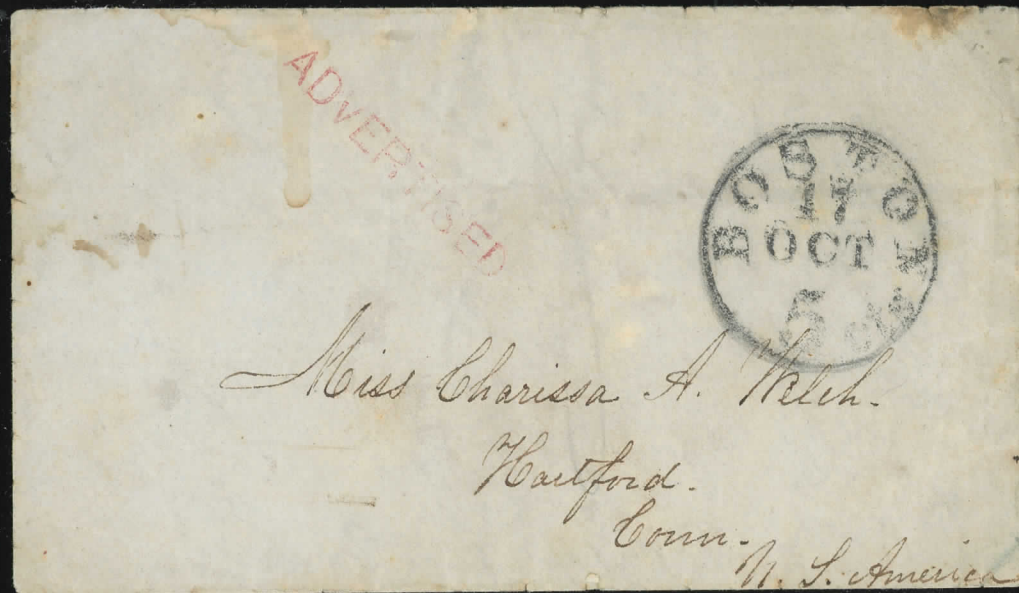 ADVERTISED
BOSTON
17
OCT
5 cts
Miss Charissa A. Welch.
Hartford.
Conn.
U. S. America